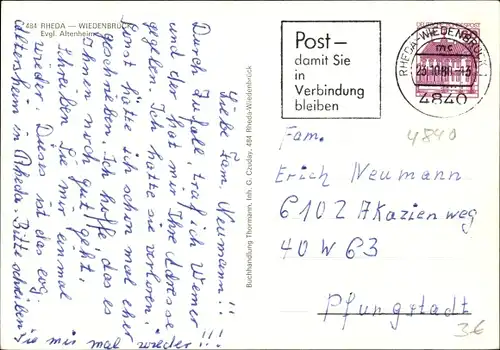 484 RHEDA — WIEDENBRÜCK
Evgl. Altenheim
Liebe Fam. Neumann!!
Durch Zufall, traf ich Werner
und der hat mir Ihre Adresse
gegeben. Ich hatte sie verloren.
Sonst hätte ich schon mal eher
geschrieben. Ich hoffe das es
Ihnen noch gut geht.
Schreiben Sie mir einmal
wieder. Dieses ist das evg.
altersheim in Rheda. Bitte schreiben
Sie mir mal wieder!!!
Buchhandlung Thormann, Inh. G. Cauday, 484 Rheda-Wiedenbrück
Post –
damit Sie
in
Verbindung
bleiben
RHEDA-WIEDENBRÜCK
mc
4840
4840
Fam.
Erich Neumann
6102 Akazienweg
40 W 63
Pfungstadt
3€